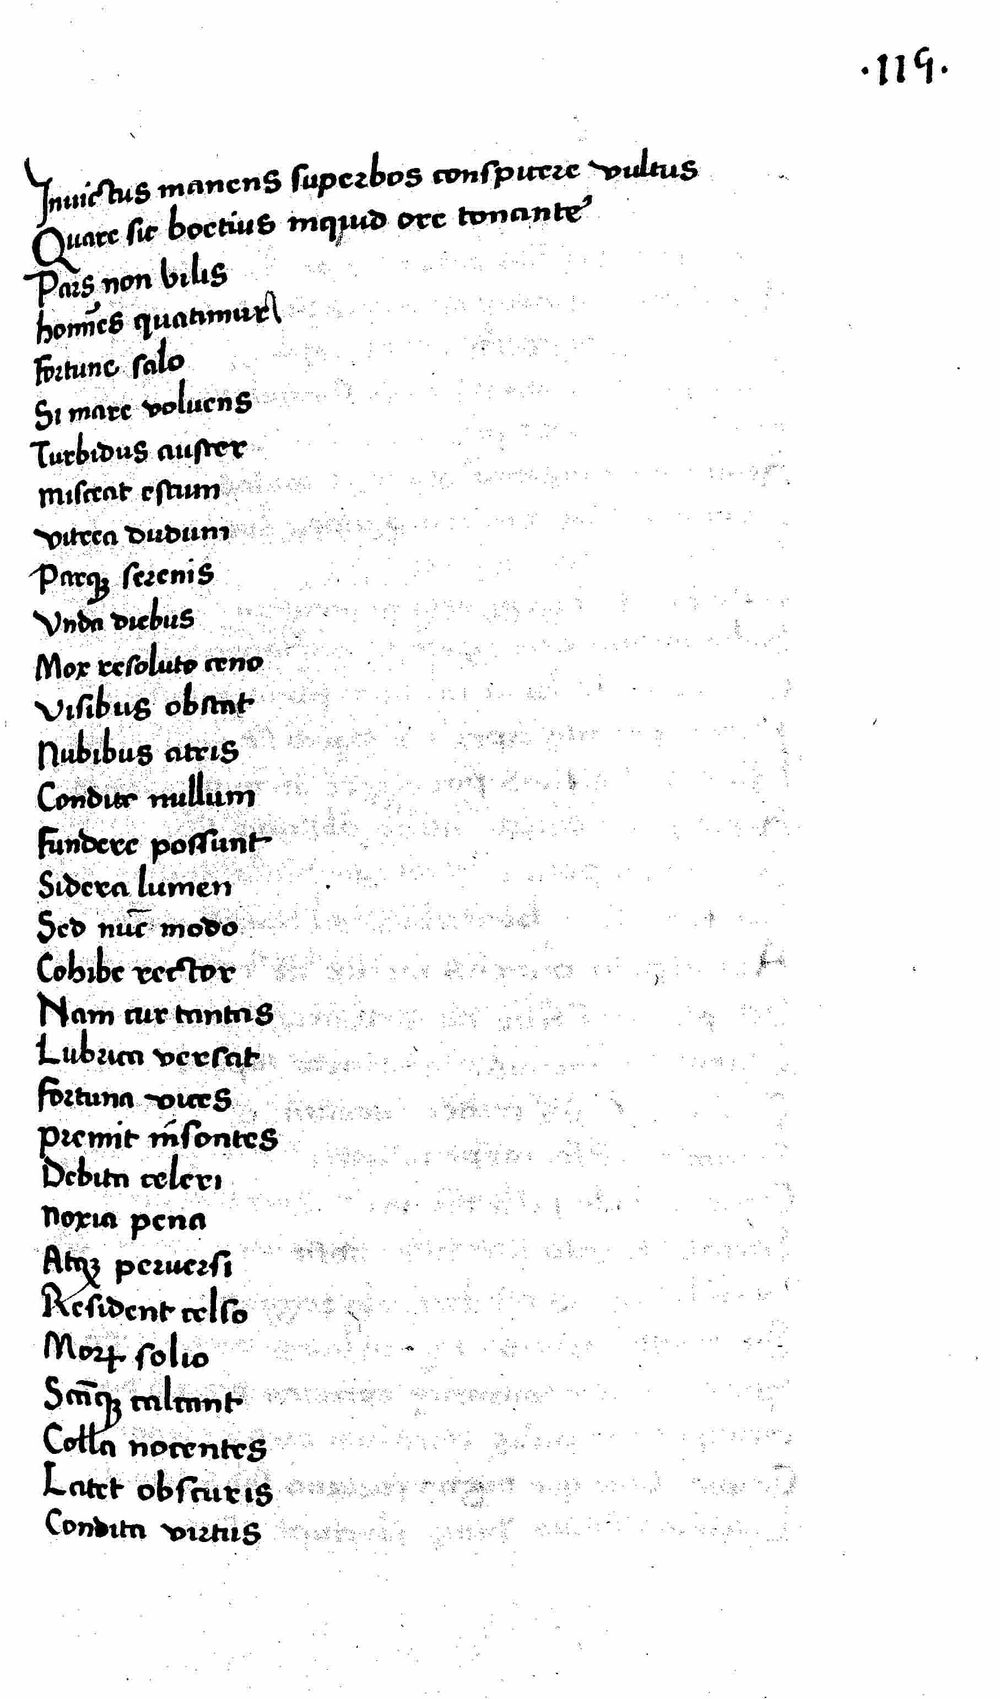 ·115·
Inuictus manens superbos conspicere vultus
Quare sic boetius inquid ore tonante
Pars non vilis
homīes quatimur
Fortune salo
Si mare voluens
Turbidus auster
misceat estum
vitrea dudum
Parqꝫ serenis
Vnda diebus
Mox resoluto ceno
Visibus obstat
Nubibus atris
Condite nullum
Fundere possunt
Sidera lumen
Sed nūc modo
Cohibe rector
Nam cur tantas
Lubrica versat
Fortuna vices
premit īnsontes
Debita celeri
noxia pena
Atqꝫ peruersi
Resident celso
Morꝝ solio
Scāqꝫ calcant
Colla nocentes
Latet obscuris
Condita virtus